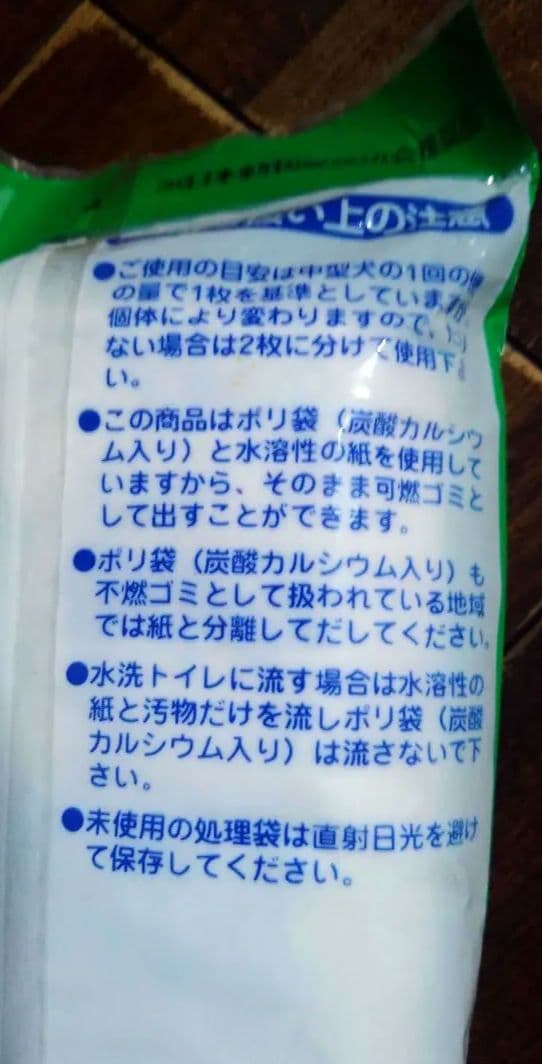 い上の注意
●ご使用の目安は中型犬の1回の
の量で1枚を基準としていま
個体により変わりますので、
ない場合は2枚に分けて使用下
い。
●この商品はポリ袋（炭酸カルシウ
ム入り）と水溶性の紙を使用して
いますから、そのまま可燃ゴミと
して出すことができます。
●ポリ袋（炭酸カルシウム入り）も
不燃ゴミとして扱われている地域
では紙と分離してだしてください。
●水洗トイレに流す場合は水溶性の
紙と汚物だけを流しポリ袋（炭酸
カルシウム入り）は流さないで下
さい。
●未使用の処理袋は直射日光を避け
て保存してください。